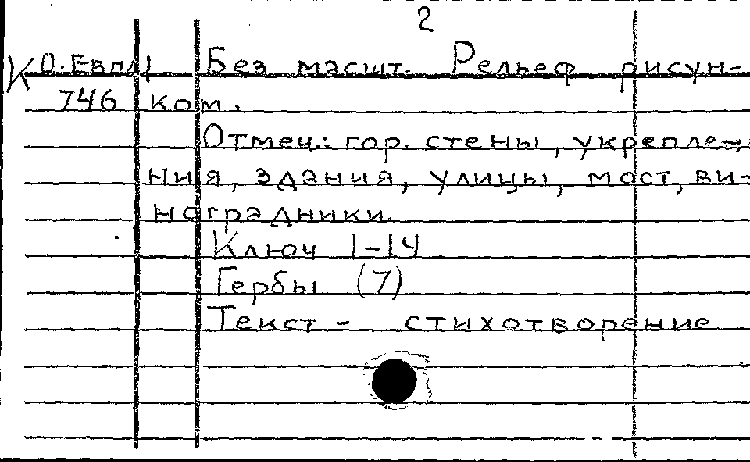 2
К О.Евпл1 Без масшт. Рельеф рисун-
746 ком.
Отмеч.: гор. стены, укрепле-
ния, здания, улицы, мост, ви-
ноградники.
Ключ 1-14
Гербы (7)
Текст - стихотворение